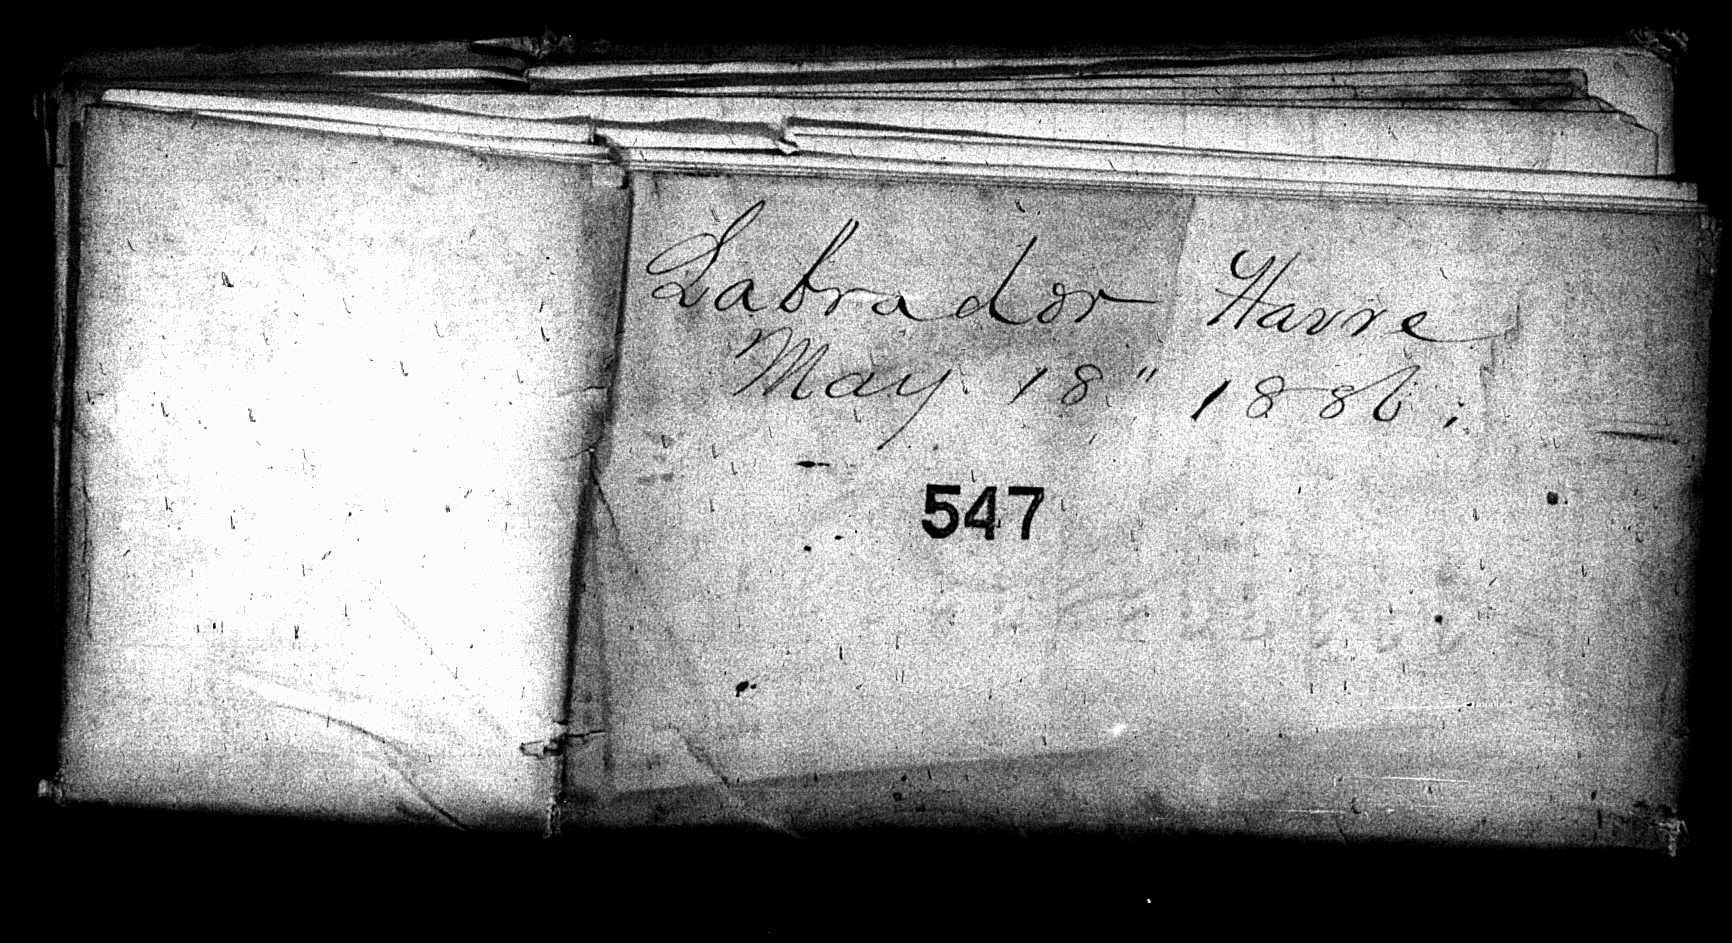 Labrador Havre
May 18" 1886.
547